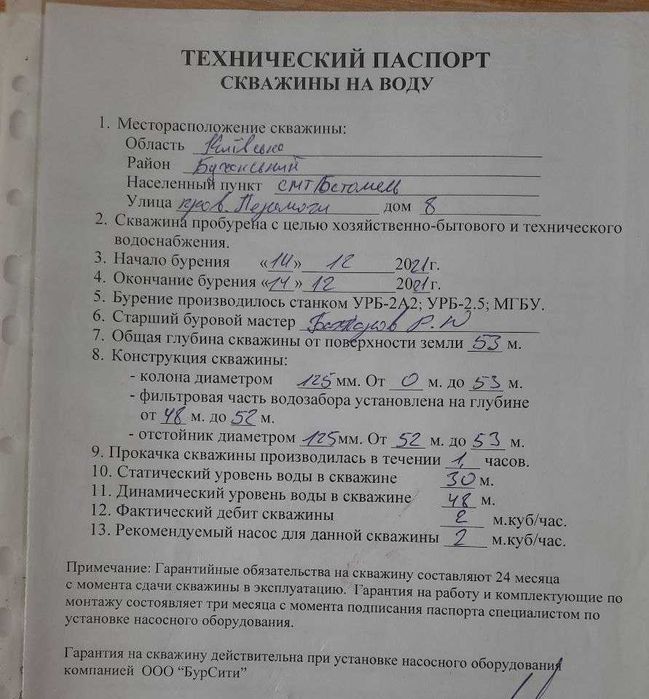 ТЕХНИЧЕСКИЙ ПАСПОРТ
СКВАЖИНЫ НА ВОДУ
1. Месторасположение скважины:
Область Київська
Район Бучанський
Населенный пункт смт
Улица пров. Перемоги дом 8
2. Скважина пробурена с целью хозяйственно-бытового и технического
водоснабжения.
3. Начало бурения «14» 12 2021г.
4. Окончание бурения «14» 12 2021г.
5. Бурение производилось станком УРБ-2А2; УРБ-2.5; МГБУ.
6. Старший буровой мастер
7. Общая глубина скважины от поверхности земли 53 м.
8. Конструкция скважины:
- колона диаметром 125мм. От 0 м. до 53 м.
- фильтровая часть водозабора установлена на глубине
от 48 м. до 52 м.
- отстойник диаметром 125мм. От 52 м. до 53 м.
9. Прокачка скважины производилась в течении 1, часов.
10. Статический уровень воды в скважине 30 м.
11. Динамический уровень воды в скважине 48 м.
12. Фактический дебит скважины 2 м.куб/час.
13. Рекомендуемый насос для данной скважины 2 м.куб/час.
Примечание: Гарантийные обязательства на скважину составляют 24 месяца
с момента сдачи скважины в эксплуатацию. Гарантия на работу и комплектующие по
монтажу состовляет три месяца с момента подписания паспорта специалистом по
установке насосного оборудования.
Гарантия на скважину действительна при установке насосного оборудования
компанией ООО "БурСити"